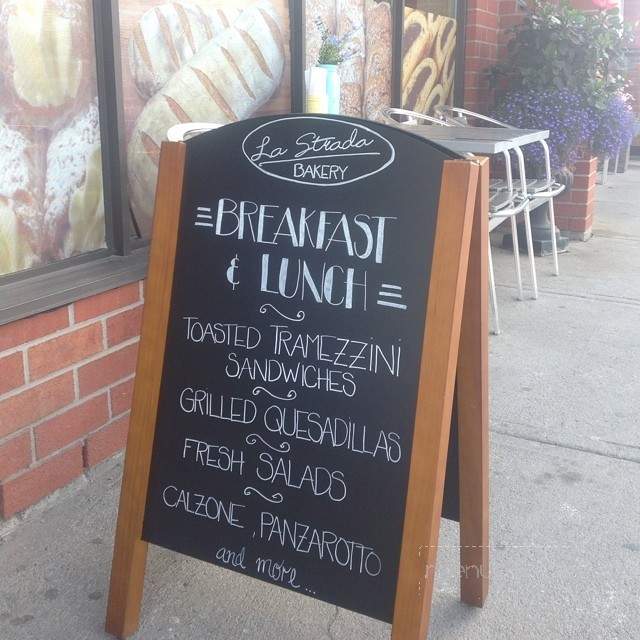 La Strada
BAKERY
BREAKFAST
& LUNCH
TOASTED TRAMEZZINI
SANDWICHES
GRILLED QUESADILLAS
FRESH SALADS
CALZONE, PANZAROTTO
and more...